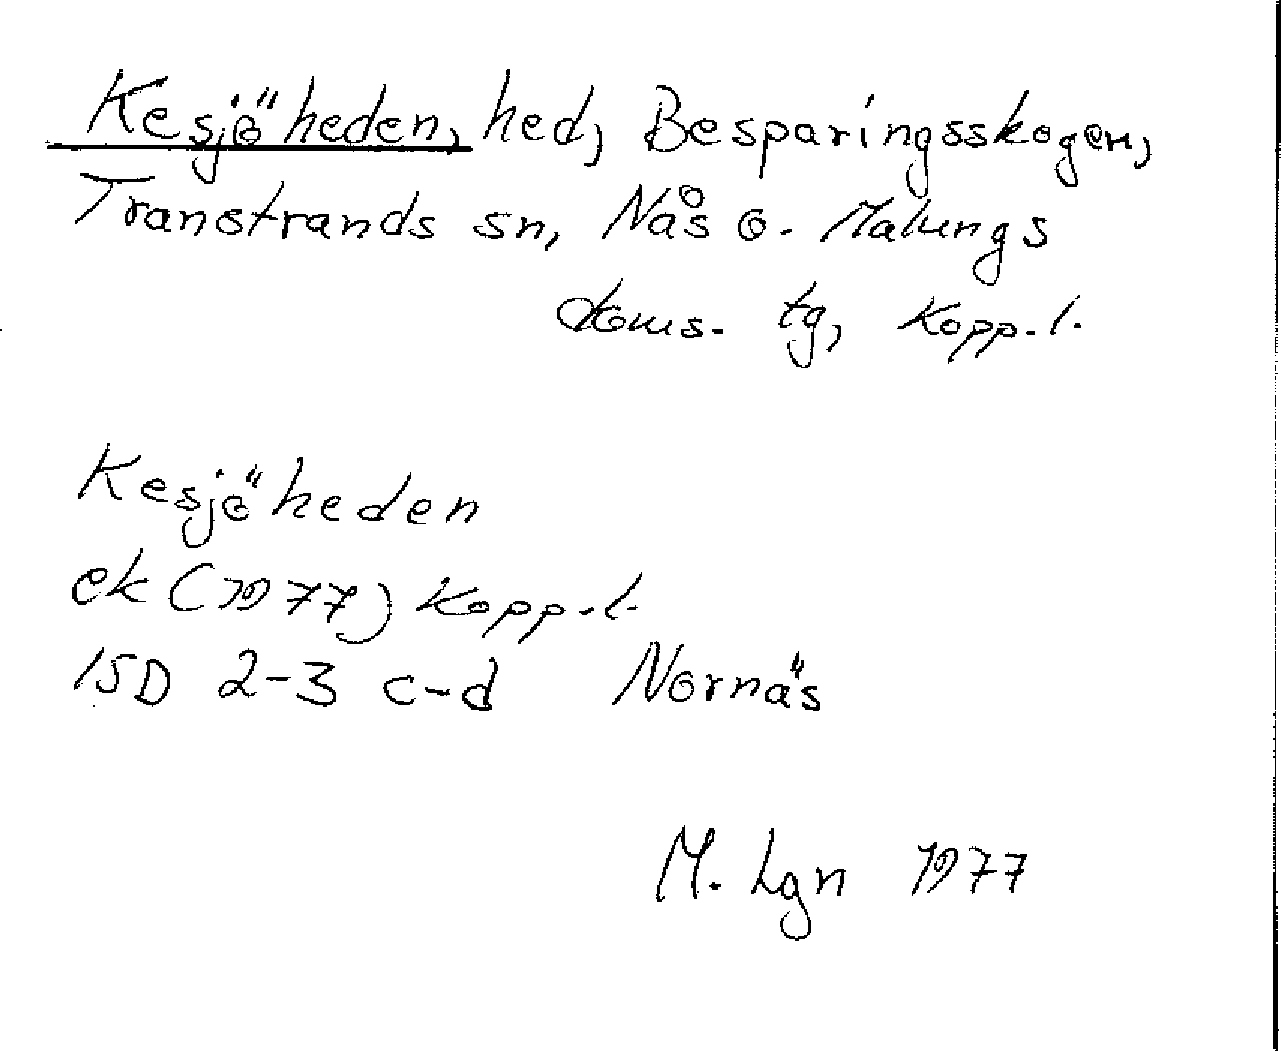 Kesjöheden, hed, Besparingsskogen,
Transtrands sn, Nås o. Malungs
doms. tg, Kopp. l.
Kesjöheden
ek (1977) Kopp. l.
15D 2-3 c-d Nornäs
M. Lgn 1977